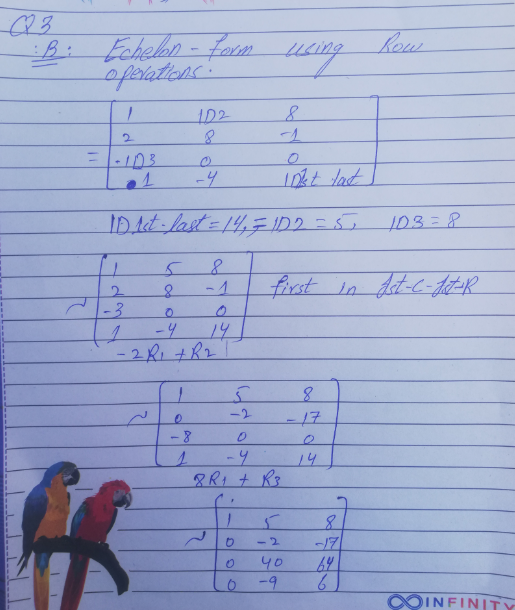 Q3
:B: Echelon-form using Row
operations.
1 1D2 8
2 8 -1
= -1D3 0 0
1 -4 1D1st last
1D1st-last=14, = 1D2 = 5, 1D3=8
1 5 8
~ 2 8 -1 first in 1st-C-1st-R
-3 0 0
1 -4 14
-2R1 + R2
1 5 8
~ 0 -2 -17
-8 0 0
1 -4 14
8R1 + R3
1 5 8
~ 0 -2 -17
0 40 64
0 -9 6
INFINITY